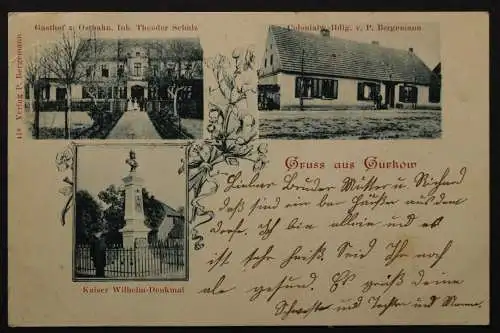 Gasthof z. Ostbahn, Inh. Theodor Schulz
Colonialw. Hdlg. v. P. Bergemann
418 Verlag P. Bergemann
Gruss aus Gurkow
Lieber Bruder Mutter u. Richard
daß sind ein par Häuser aus dem
Dorfe. ich bin allein und es
ist sehr heiß. Seid Ihr noch
alle gesund. Es grüß deine
Schwester und Tochter und
Kaiser Wilhelm-Denkmal